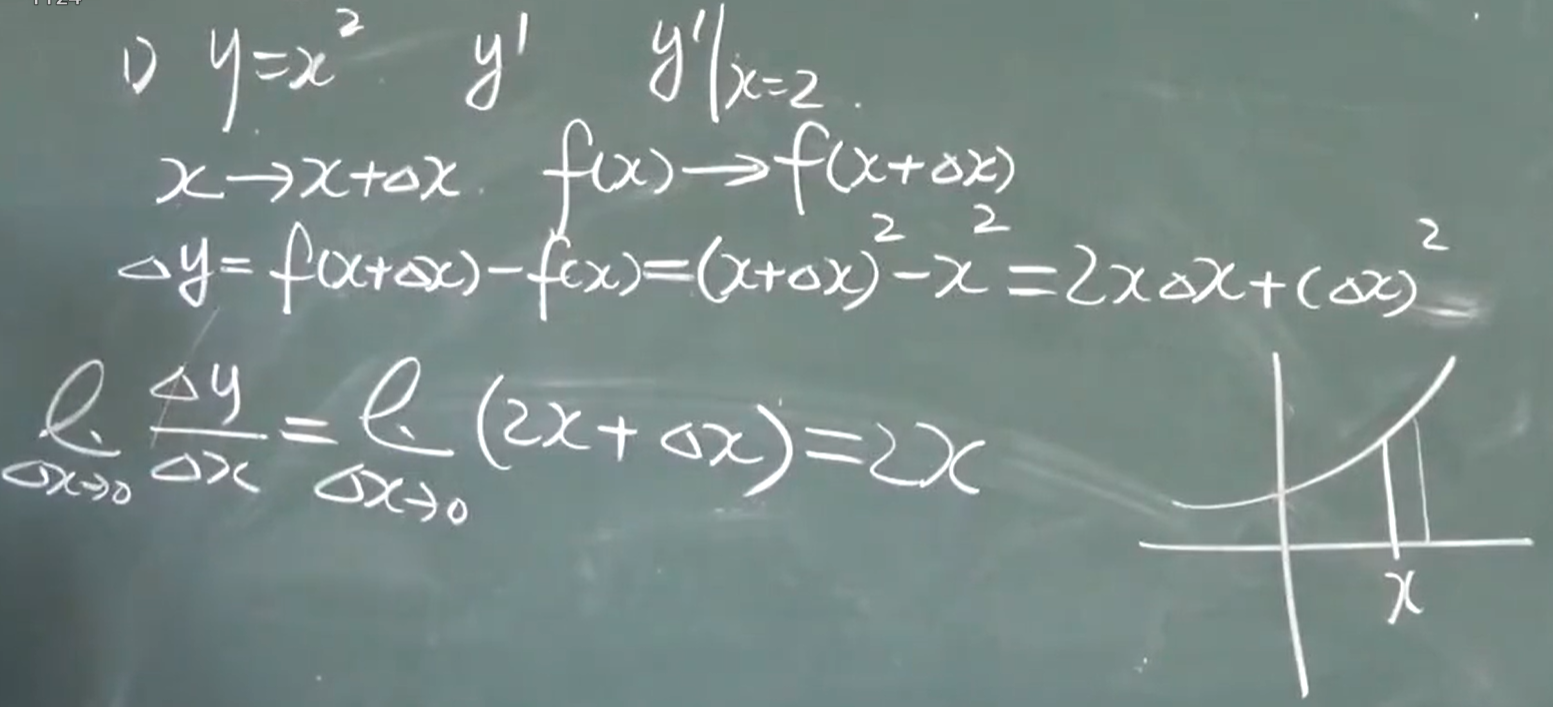 1) y=x² y' y'|x=2.
x→x+Δx. f(x)→f(x+Δx)
Δy=f(x+Δx)-f(x)=(x+Δx)²-x²=2xΔx+(Δx)²
l. Δx→0 Δy/Δx = l. Δx→0 (2x+Δx)=2x
x